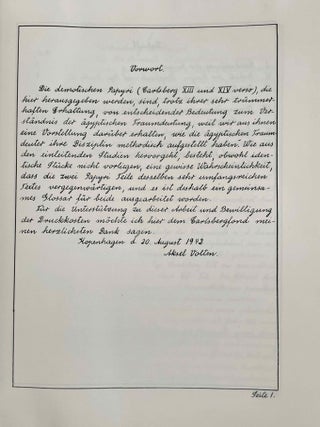 Vorwort.
Die demotischen Papyri (Carlsberg XIII und XIV verso), die
hier herausgegeben werden, sind, trotz ihrer sehr trümmer-
haften Erhaltung, von entscheidender Bedeutung zum Ver-
ständnis der ägyptischen Traumdeutung, weil wir aus ihnen
eine Vorstellung darüber erhalten, wie die ägyptischen Traum-
deuter ihre Disziplin methodisch aufgestellt haben. Wie aus
den einleitenden Studien hervorgeht, besteht, obwohl iden-
tische Stücke nicht vorliegen, eine gewisse Wahrscheinlichkeit,
dass die zwei Papyri Teile desselben sehr umfangreichen
Textes vergegenwärtigen, und es ist deshalb ein gemeinsa-
mes Glossar für beide ausgearbeitet worden.
Für die Unterstützung zu dieser Arbeit und Bewilligung
der Druckkosten möchte ich hier dem Carlsbergfond mei-
nen herzlichsten Dank sagen.
Kopenhagen d. 20. August 1942.
Aksel Volten.
Seite 1.